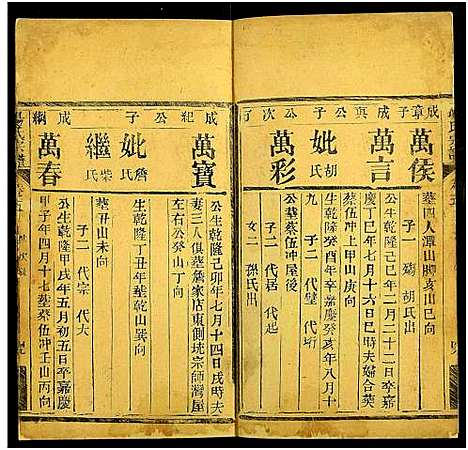 成章子 成與公子 成次公子
萬侯
墓四人潭山脚亥山巳向
子一 胡氏出
萬言
公生乾隆己巳年二月二十二日卒嘉
慶丁巳年七月十六日巳時夫婦合葬
蔡伍冲上甲山庚向
妣胡氏
生乾隆癸酉年卒嘉慶癸亥年八月十
九 子二 代璧 代珩
萬彩
公墓蔡伍冲屋後
子二 代居 代起
女二 孫氏出
成紀公子 成綱
萬寶
公生乾隆己卯年七月十四日戌時夫
妻三人俱塟詹家店東側垅宗師灣屋
左右公癸山丁向
妣詹氏
生乾隆丁丑年塟乾山巽向
繼柴氏
塟丑山未向
子二 代宗 代大
萬春
公生乾隆甲戌年五月初五日卒嘉慶
甲子年四月十七塟蔡伍冲壬山丙向